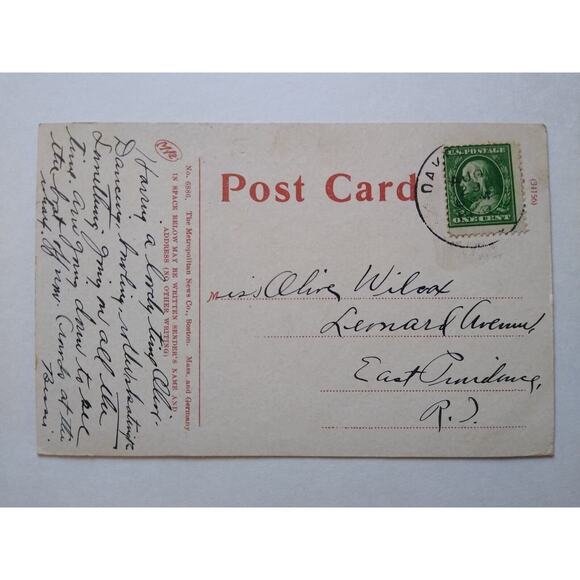 Having a lovely time Olive.
Dancing, bowling, rollerskating &
Something going on all the
time. Are going down to see
the first of new Crooks at the

No. 6886. The Metropolitan News Co., Boston. Mass. and Germany
IN SPACE BELOW MAY BE WRITTEN SENDER'S NAME AND
ADDRESS (NO OTHER WRITING)
Post Card
DAV
U.S. POSTAGE
ONE CENT
(34156)
Miss Olive Wilcox
Leonard Avenue,
East Providence,
R.I.